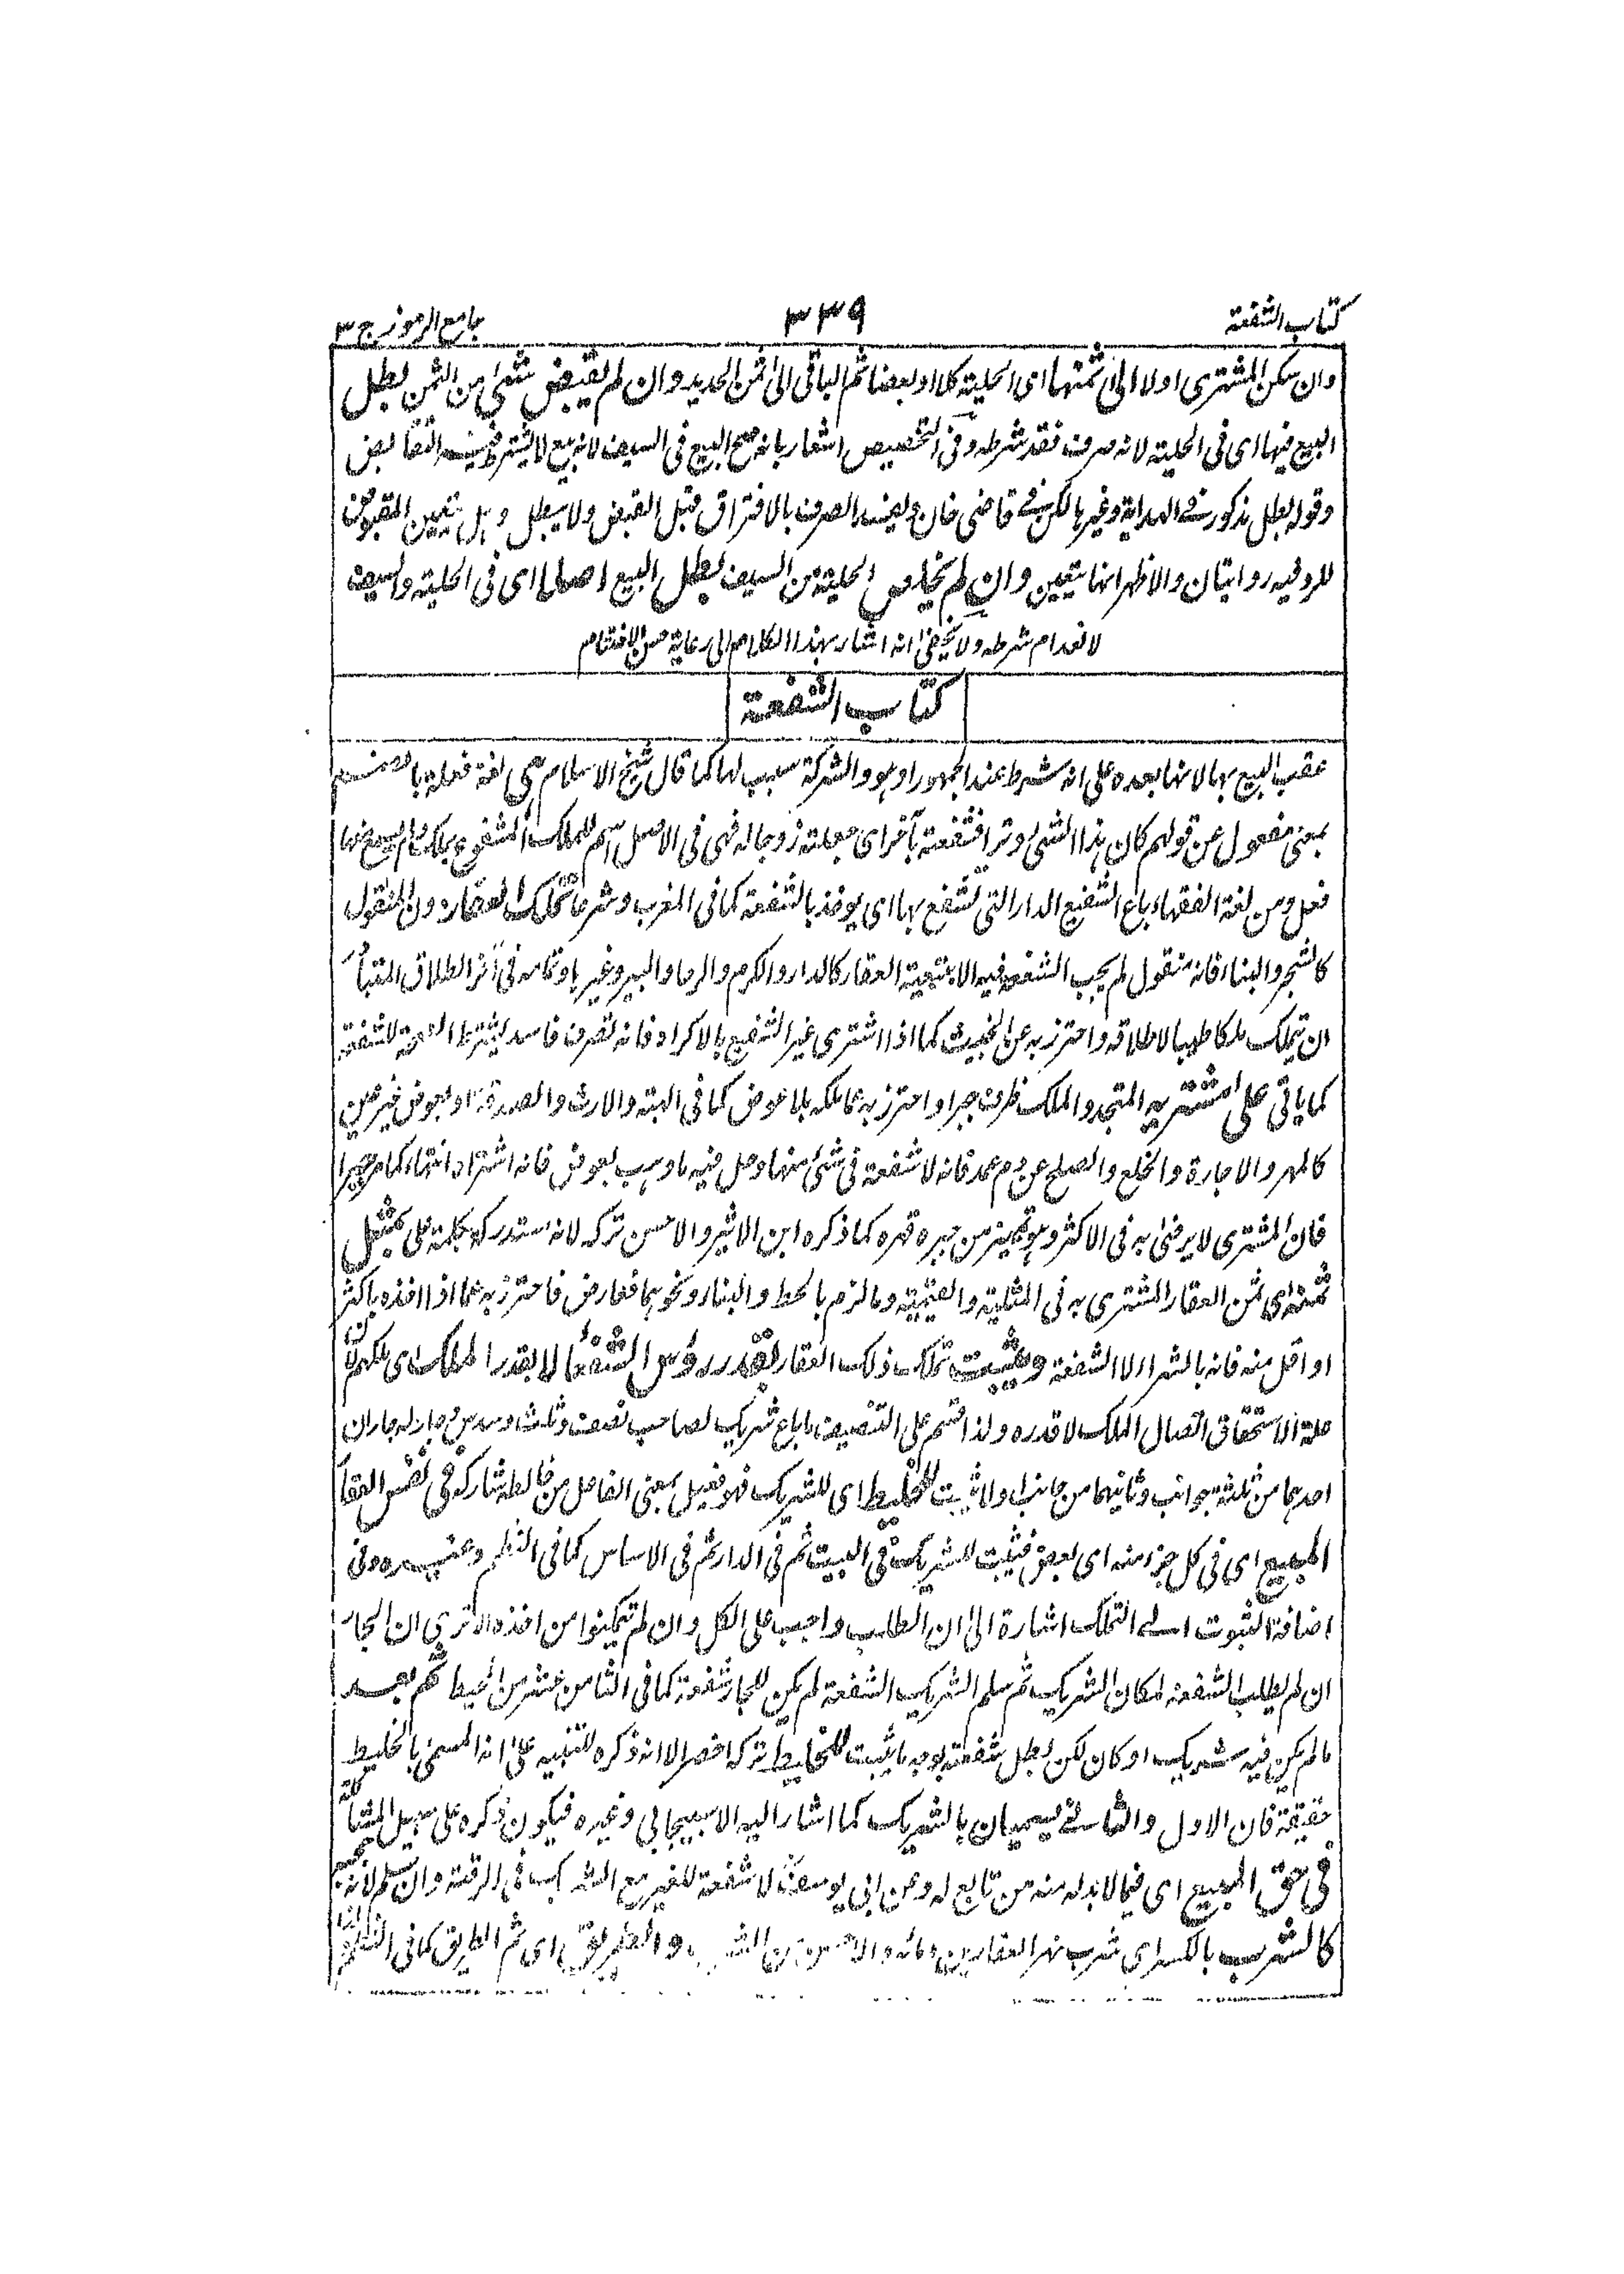 كتاب الشفعة
٣٣٩
جامع الرموز ج ٣
وان سكن المشترى اولا الى ثمنها اى الحلية كلا او بعضا ثم الباقى الى ثمن الحديد وان لم يقبض شئ من الثمن بطل
البيع فيها اى فى الحلية لانه صرف فقد شرطه وفى التخصيص اشعار بانه صح البيع فى السيف لانه بيع لا يشترط فيه التقابض
وقوله بطل مذكور فى الهداية وغيرها لكن فى قاضى خان ويفسد الصرف بالافتراق قبل القبض ولا يبطل وهل تتعين المقبوض
للرد فيه روايتان والاظهر انها يتعين وان لم يخلص الحلية من السيف بطل البيع اصلا اى فى الحلية والسيف
لانعدام شرطه ولا يخفى انه اشار بهذا الكلام الى رعاية حسن الاختتام
كتاب الشفعة
عقب البيع بها لانها بعده على انه شرط عند الجمهور او هو والشركة سبب لها كما قال شيخ الاسلام هى لغة فعلة بالضم
بمعنى مفعول عن قولهم كان هذا الشئ وترا فشفعته بآخر اى جعلته زوجا له فهى فى الاصل اسم للملك المشفوع بملك ولم يسمع منها
فعل ومن لغة الفقهاء باع الشفيع الدار التى تشفع بها اى يوخذ بالشفعة كما فى المغرب وشرعا تملك العقار دون المنقول
كالشجر والبناء فانه منقول لم يجب الشفعة فيه الا بتبعية العقار كالدار والكرم والرحا والبير وغيرها وتمامه فى آخر الطلاق المتبا
ان تيملك ملكا طيبا لاطلاقه واحترز به عن الخبيث كما اذا اشترى غير الشفيع بالاكراه فانه تصرف فاسد يشترط الصحة للشفعة
كما ياتى على مشتريه المتجدد الملك ظرف جبرا واحترز به عما ملكه بلا عوض كما فى الهبة والارث والصدقة او بعوض غير عين
كالمهر والاجارة والخلع والصلح عن دم عمد فانه لا شفعة فى شئ منها ودخل فيه ما وهب بعوض فانه اشتراء انتهاء كما مر جبرا
فان المشترى لا يرضى به فى الاكثر وهو تمييز من جبره قهره كما ذكره ابن الاثير والاحسن تركه لانه مستدرك بكلمة على بمثل
ثمنه اى ثمن العقار المشترى به فى المثلية والقيمية وما لزم بالحط والبناء ونحوهما فعارض فاحترز به عما اذا اخذه باكثر
او اقل منه فانه بالشراء لا الشفعة ويثبت تملك ذلك العقار بقدر رؤس الشفعاء لا بقدر الملك اى ملكهم لان
علة الاستحقاق اتصال الملك لا قدره ولذا قسم على التنصيف ما باع شريك لصاحب نصف وثلث وسدس وجاز له جاران
احدهما من ثلثة جوانب وثانيهما من جانب اولا يثبت للخليط اى للشريك فهو فعيل بمعنى الفاعل من خالطه شاركه فى نفس العقار
المبيع اى فى كل جزء منه اى بعض فيثبت للشريك فى البيت ثم فى الدار ثم فى الاساس كما فى النظم وغيره وفى
اضافة الثبوت الى التملك اشارة الى ان الطلب واجب على الكل وان لم تمكينوا من اخذه الا ترى ان الجار
ان لم يطلب الشفعة لمكان الشريك ثم سلم الشريك الشفعة لم يكن للجار شفعة كما فى الثامن عشر من المحيط ثم بعد
ما لم يكن فيه شريك او كان لكن بطل شفعته بوجه ما يثبت للخليط تركه اخصر الا انه ذكره للتنبيه على انه المسمى بالخليط
حقيقة فان الاول والثانى يسميان بالشريك كما اشار اليه الاسبيجابى وغيره فيكون ذكره على سبيل المشاكلة
فى حق المبيع اى فيما لابد له منه من تابع له وعن ابى يوسف لا شفعة للغير مع الشريك فى الرقبة وان سلم لانه
كالشرب بالكسر اى شرب نهر العقار والطريق اى ثم الطريق كما فى النظم